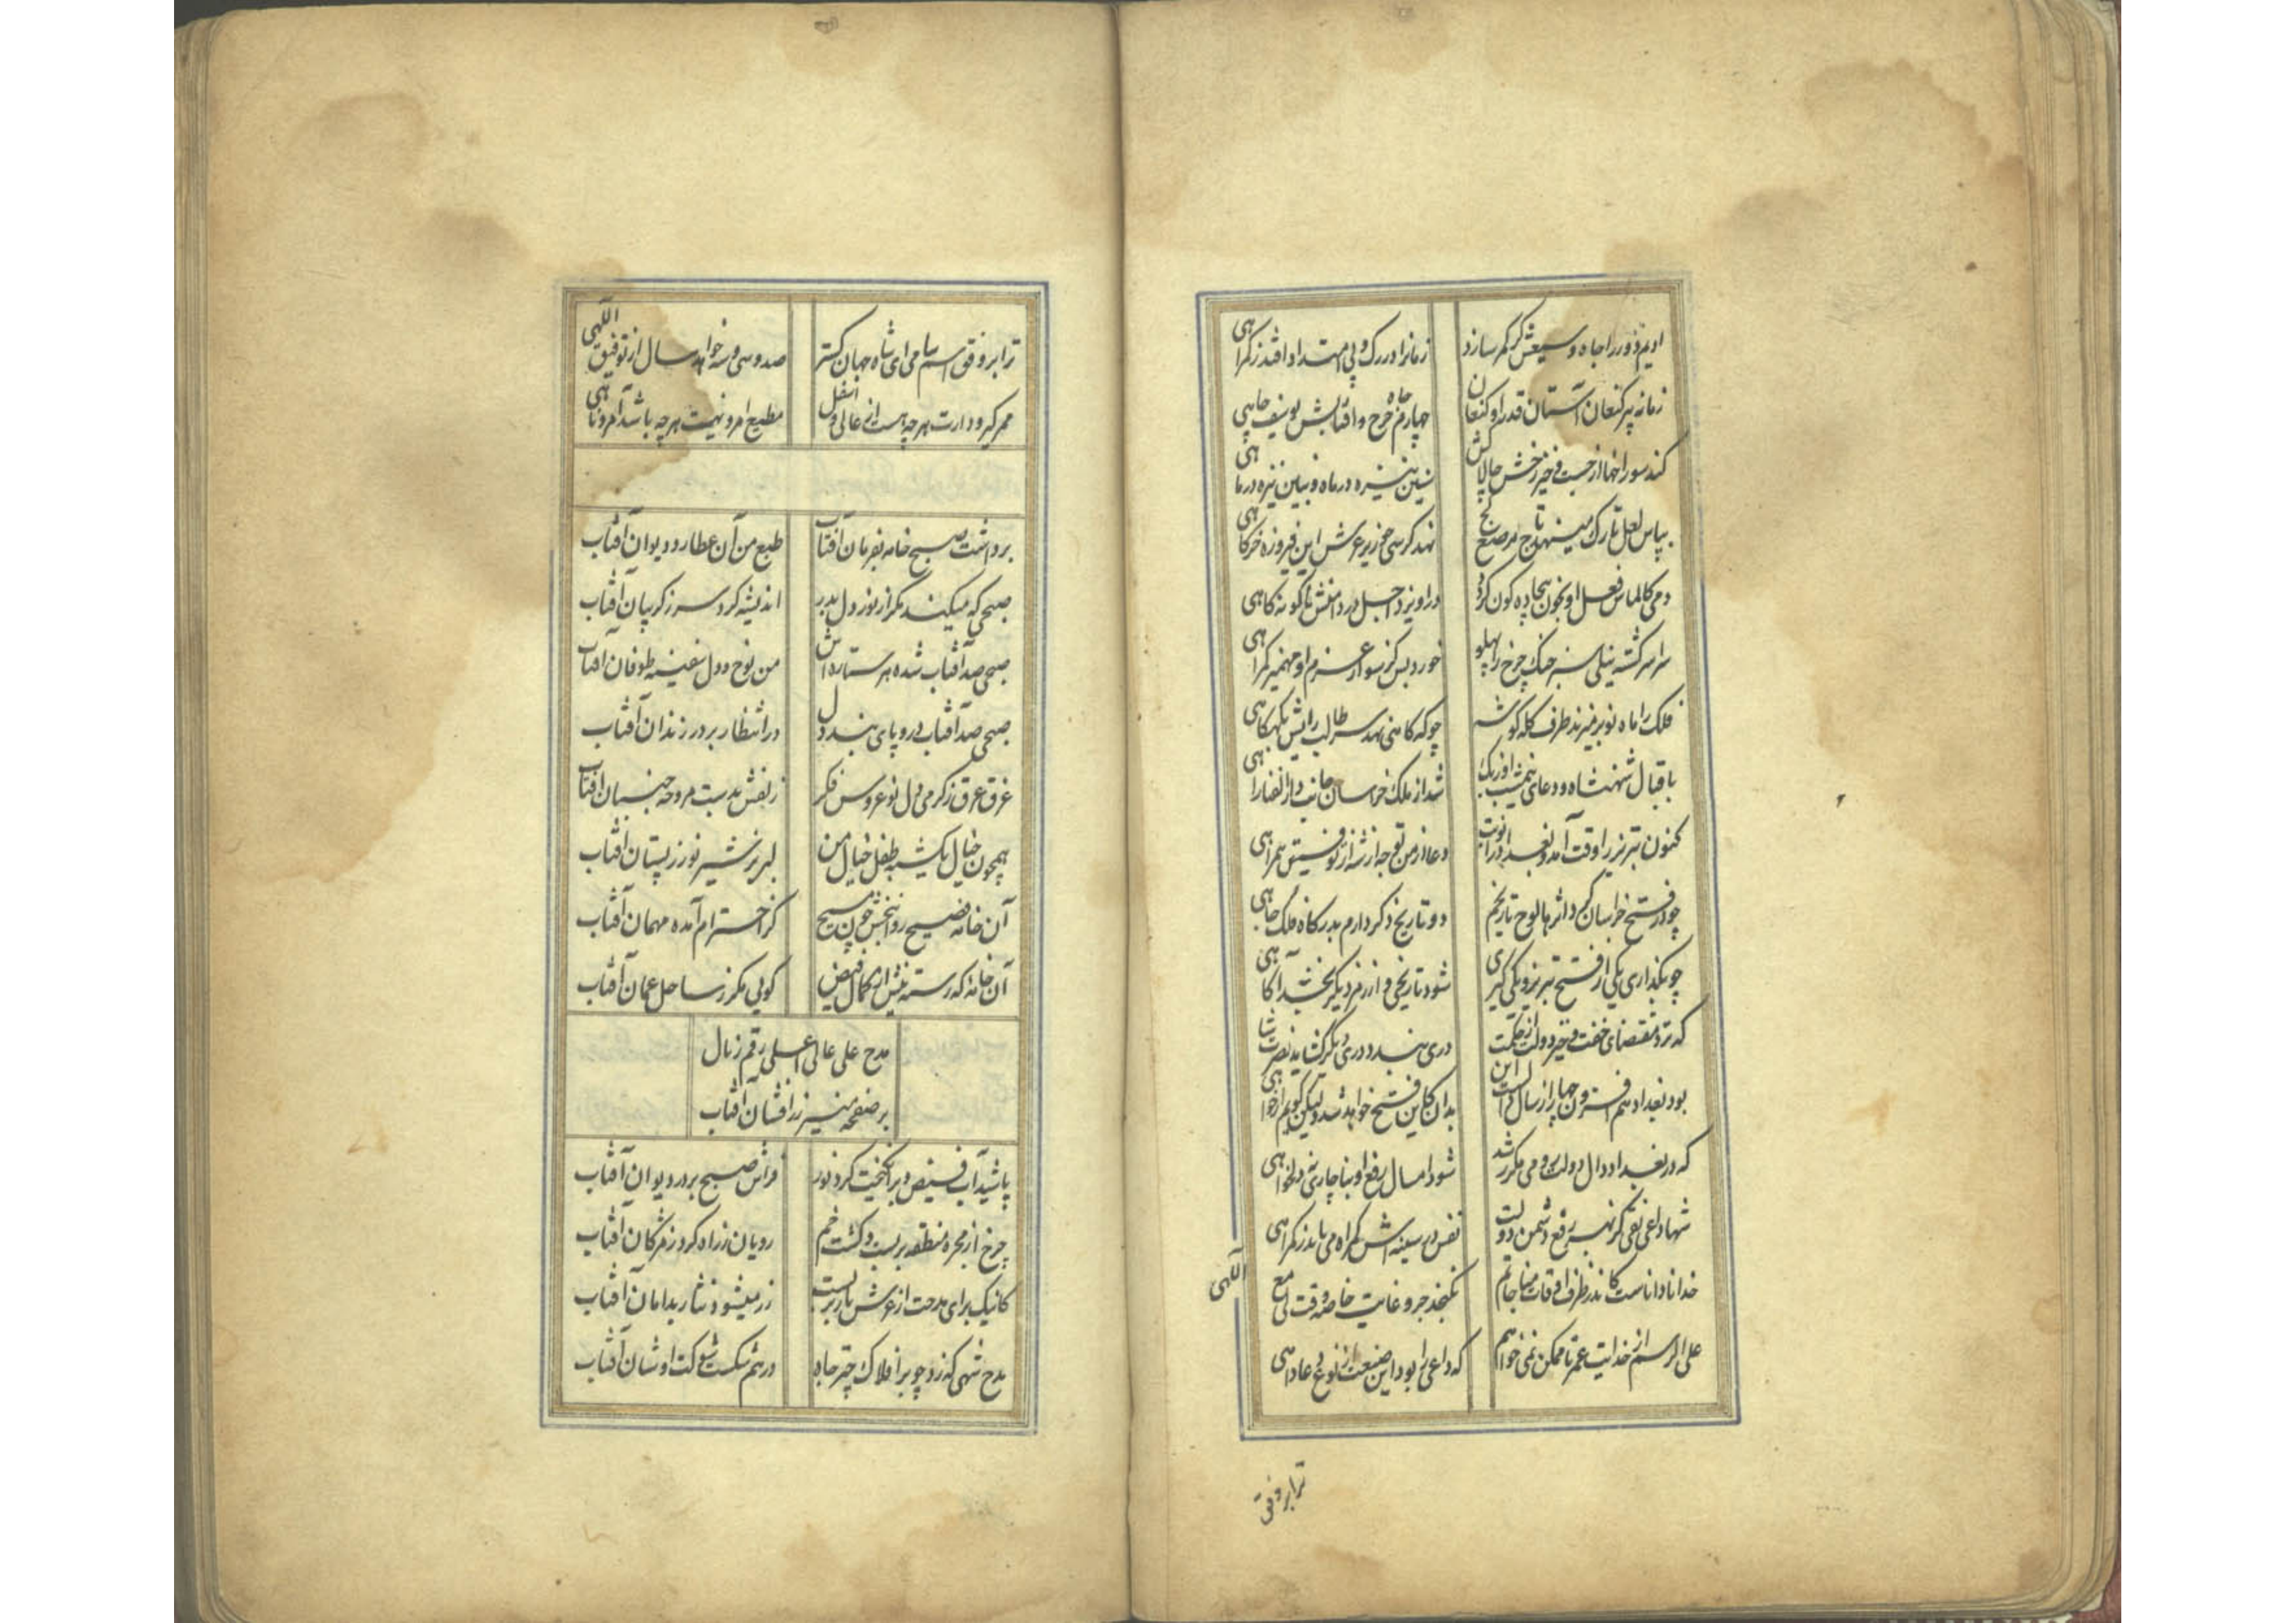 ادیم دور را جاه وسیعش گر کمر سازد زمانرا در رک و پی مهتد او افتد ز کمراهی
زمانه پیر کنعان آستان قدر او کنعان چهارم چرخ چاه و افتابش یوسف چاهی
کند سوراخها از جست و خیز رخش چالاکش
بپاس لعل تارک مینهد تاج مرصع نهد کرسی زیر عرش این فیروزه خرکاهی
دمی کالماس فعل او بخون بیجاده کون کردد دراویزد اجل در دامنش تا کونه کاهی
سراسر کشته نیلی سبز خنک چرخ را پهلو خورد بس کز سوار عزم او مهمیز کمراهی
فلک را ماه نو بر میزند طرف کله کوشه چو که کاهی نهد سر طالب رایش بکهکاهی
باقبال شهنشاه و دعای نیمشب اوزبک شد از ملک خراسان جانب دار
کنون تبریز را وقت آمد و بغداد را نوبت دعا از من توجه از شه از توفیق همراهی
چو در فتح خراسان کرد اثرها لوح تاریخم دو تاریخ دکر دارم بدرکاه فلک جاهی
چو بکذاری یکی از فتح تبریز و یکی کیری شود تاریخی و از رمز دیکر بخشد آکاهی
که نزد مقتضای خفت و خیز دولت از حکمت دری بندد دری دیگر کشاید نصرت شاهی
بود بغداد هم افزون چهار از سال این دولت بدان کاین فتح خواهد شد ولیکن کویم ار خواهی
که در بغداد دال دولت رومی مکرر شد شود امسال رفع او بناچاری نه دلخواهی
شها داعی تقی کز بهر رفع دشمن دولت نفس در سینه اش کمراه می ماند ز کمراهی
خدا نا دا ناست کاندر ظرف اوقات مناجاتم نکنجد جر و غایت خاصه وقت لی مع اللهی
علی الرسم از خدایت عمر تا ممکن نمی خواهم که داعی را بود این صنعت از نوع دعا داهی
ترا بر وفق
ترا بر وفق اسم سامی ای شاه جهان کستر صد و سی و سه خواهد سال از توفیق اللهی
مقر کرد دارت هر چه هست از عالی و اسفل مطیع امر و نهیت هر چه باشد آمر و ناهی
برداشت صبح خامه بفرمان آفتاب طبع من آن عطارد و دیوان آفتاب
صبحی که میکند مکر از نور دل بدر اندیشه کرد سر ز کریبان آفتاب
صبحی صد آفتاب شده هر ستاره اش من نوح و دل سفینه طوفان آفتاب
صبحی صد آفتاب در و پای بند دل در انتظار بر در زندان آفتاب
غرق عرق ز کرمی دل نو عروس فکر زلفش بدست مروحه جنبان آفتاب
همچون خیال یکشبه طفل خیال من لبریز شیر نور ز پستان آفتاب
آن خامه فصیح روانبخش چون مسیح کز احترام آمده مهمان آفتاب
آن خامه که رسته نیش از کمال فیض کویی مکر ز ساحل عمان آفتاب
مدح علی عالی اعلی رقم زنان
بر صفحه منیر زرافشان آفتاب
پاشید آب فیض و برانکیخت کرد نور فراش صبح بر در دیوان آفتاب
چرخ از مجره منطقه بر بست و کشت خم رویان ز راه کرد ز مژکان آفتاب
کانیک برای مدحت از عرش بار بست زر میشود نثار بدامان آفتاب
مدح شهی که زد چو بر افلاک چتر جاه در هم شکست شوکت او شان آفتاب